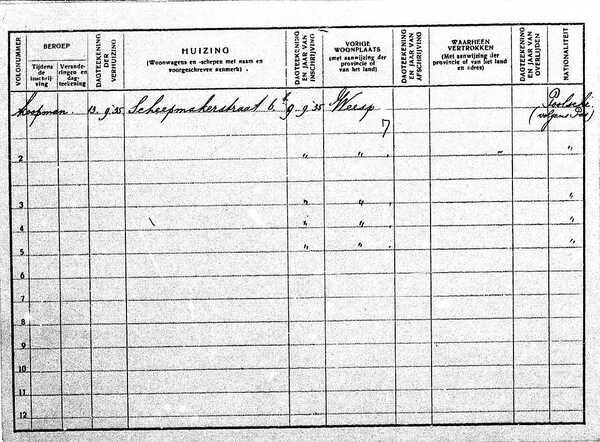 VOLGNUMMER
BEROEP
Tijdens de inschrijving
Veranderingen en dagteekening
DAGTEEKENING DER VERHUIZING
HUIZING
(Woonwagens en -schepen met naam en voorgeschreven aanmerk)
DAGTEEKENING EN JAAR VAN INSCHRIJVING
VORIGE WOONPLAATS
(met aanwijzing der provincie of van het land)
DAGTEEKENING EN JAAR VAN AFSCHRIJVING
WAARHEEN VERTROKKEN
(Met aanwijzing der provincie of van het land en adres)
DAGTEEKENING EN JAAR VAN OVERLIJDEN
NATIONALITEIT
koopman. 13.9.'35 Scheepmakerstraat 6 9.9.'35 Weesp Poolsche
7 (volgens Pas)
2 " " " "
3 " " "
4 " " "
5 " " "
6
7
8
9
10
11
12